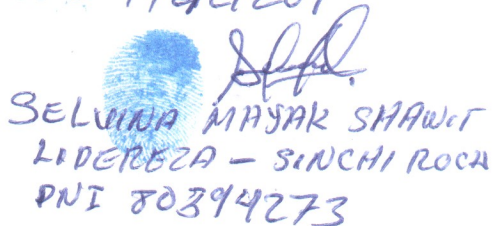 SELVINA MAYAK SHAWIT
LIDEREZA - SINCHI ROCA
DNI 80394273